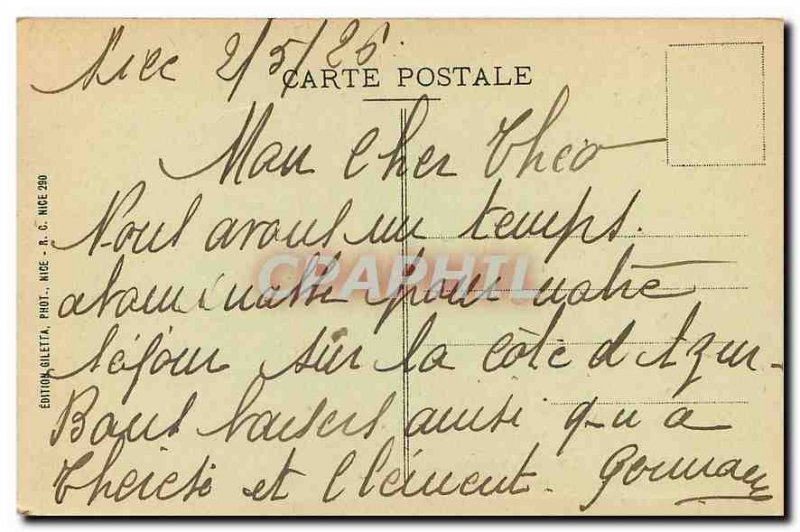 Nice 2/5/26.
CARTE POSTALE
Mon Cher Théo
Nous avons un temps.
abominable pour notre
séjour sur la côte d'Azur.
Bons baisers ainsi qu'à
Thérèse et Clément.
ÉDITION GILETTA, PHOT., NICE - R. C. NICE 290
CPAPHIL